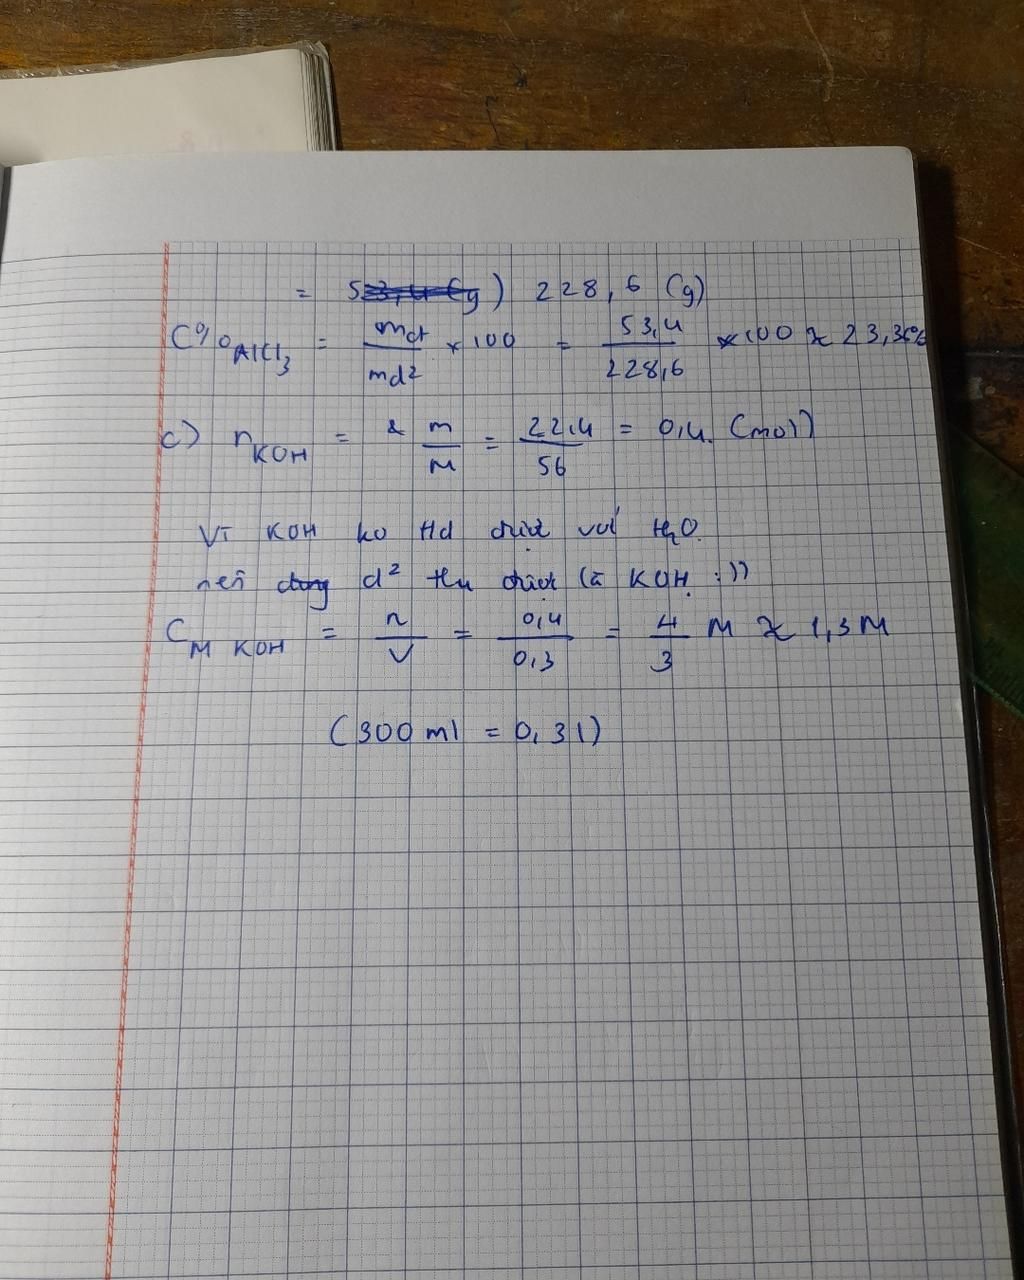 = 228,6 (g)
C%AlCl3 = mct/md2 × 100 = 53,4/228,6 × 100 ≈ 23,36%
c) nKOH = m/M = 22,4/56 = 0,4 (mol)
Vì KOH ko td được với H2O
nên d2 thu được là KOH :))
CM KOH = n/V = 0,4/0,3 = 4/3 M ≈ 1,3M
(300 ml = 0,3l)